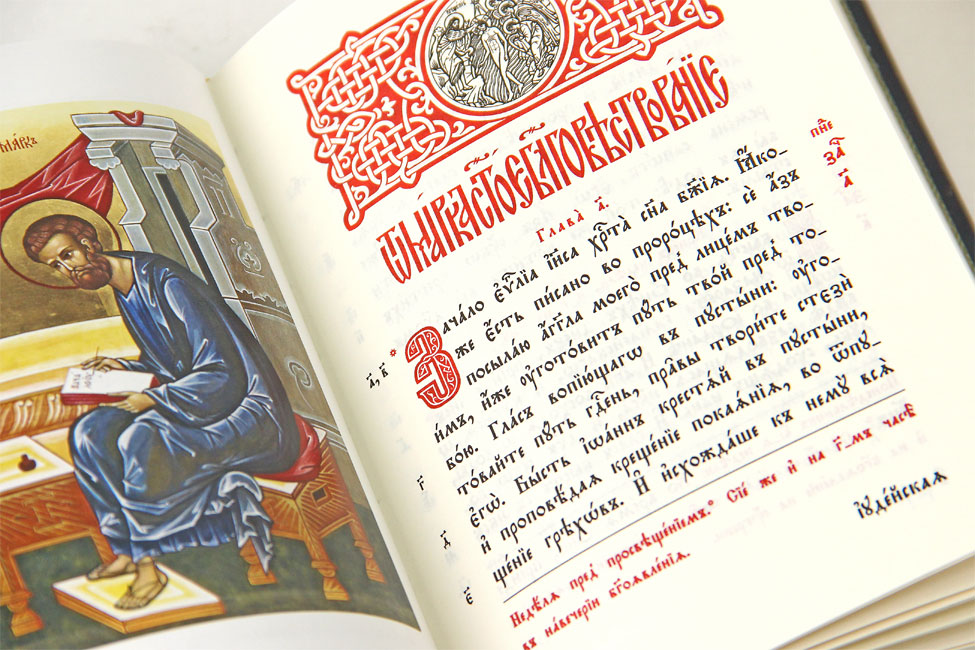 МА́РКЪ
Ѿ МА́РКА СТ҃О́Е БЛ҃ГОВѢСТВОВА́НЇЕ
Глава̀ а҃.
Зача́ло є҆ѵⷢ҇лїа і҆и҃са хрⷭ҇та̀ сн҃а бж҃їѧ. Ꙗ҆́ко-
же є҆́сть пи́сано во проро́цѣхъ: сѐ а҆́зъ
посыла́ю а҆́гг҃ла моего̀ пред̾ лице́мъ тво-
и́мъ, и҆́же ᲂу҆гото́витъ пꙋ́ть тво́й пред̾ то-
бо́ю. Гла́съ вопїю́щагѡ въ пꙋсты́ни: ᲂу҆го-
то́вайте пꙋ́ть гдⷭ҇ень, пра̑вы твори́те стєзѝ
є҆гѡ̀. Бы́сть і҆ѡа́ннъ крестѧ́й въ пꙋсты́ни,
и҆ проповѣ́даѧ креще́нїе покаѧ́нїѧ, во ѿпꙋ-
ще́нїе грѣхѡ́въ. И҆ и҆схожда́ше къ немꙋ̀ всѧ̀
і҆ꙋде́йскаѧ
Недѣ́лѧ пред̾ просвѣще́нїемъ. Сїе́ же и҆ на г҃-мъ часѣ̀
въ наве́черїи бг҃оѧвле́нїѧ.
а҃, в҃
г҃
д҃
є҃